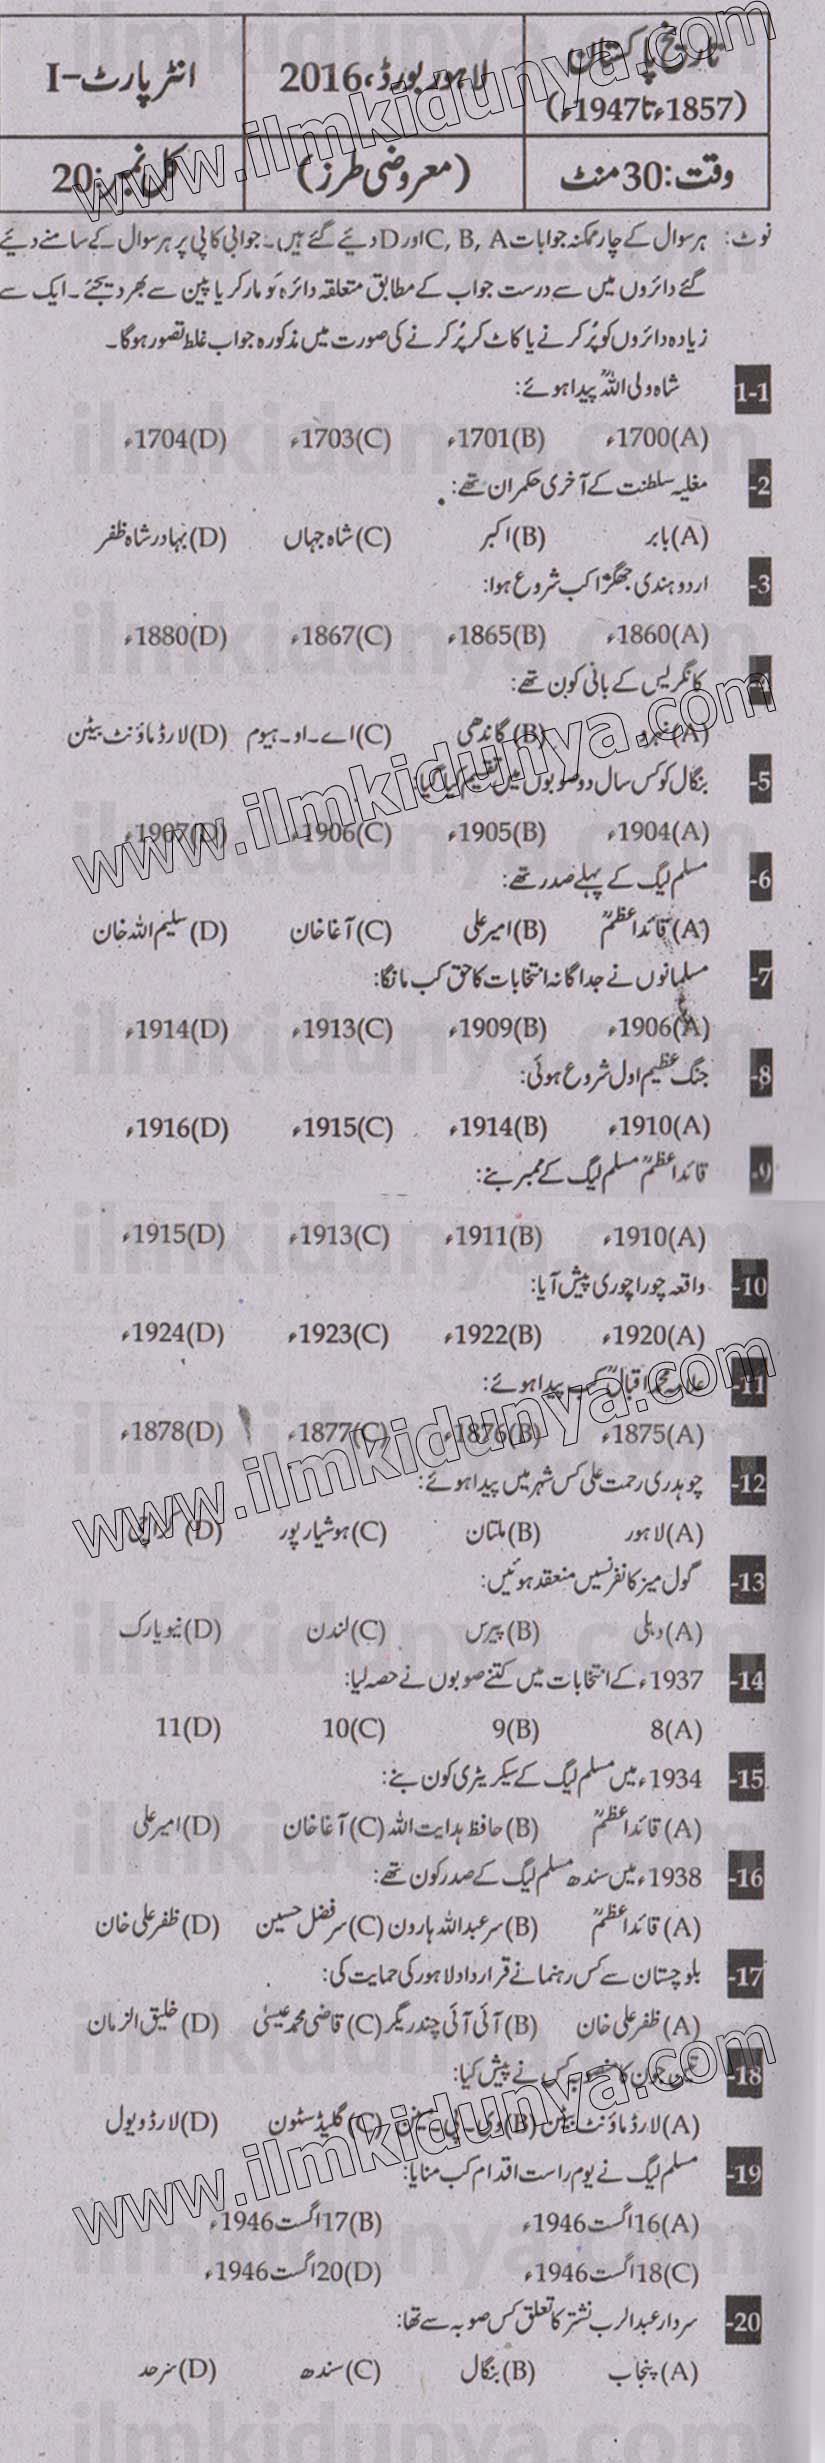 تاریخ پاکستان
(1857ء تا 1947ء)
لاہور بورڈ، 2016ء
انٹر پارٹ-I
وقت: 30 منٹ
(معروضی طرز)
کل نمبر: 20
نوٹ: ہر سوال کے چار ممکنہ جوابات C, B, A اور D دیئے گئے ہیں۔ جوابی کاپی پر ہر سوال کے سامنے دیئے
گئے دائروں میں سے درست جواب کے مطابق متعلقہ دائرہ کو مارکر یا پین سے بھر دیجئے۔ ایک سے
زیادہ دائروں کو پُر کرنے یا کاٹ کر پُر کرنے کی صورت میں مذکورہ جواب غلط تصور ہوگا۔
1-1 شاہ ولی اللہؒ پیدا ہوئے:
(A) 1700ء (B) 1701ء (C) 1703ء (D) 1704ء
-2 مغلیہ سلطنت کے آخری حکمران تھے:
(A) بابر (B) اکبر (C) شاہ جہاں (D) بہادر شاہ ظفر
-3 اردو ہندی جھگڑا کب شروع ہوا:
(A) 1860ء (B) 1865ء (C) 1867ء (D) 1880ء
-4 کانگریس کے بانی کون تھے:
(A) نہرو (B) گاندھی (C) اے۔ او۔ ہیوم (D) لارڈ ماؤنٹ بیٹن
-5 بنگال کو کس سال دو صوبوں میں تقسیم کیا گیا:
(A) 1904ء (B) 1905ء (C) 1906ء (D) 1907ء
-6 مسلم لیگ کے پہلے صدر تھے:
(A) قائداعظمؒ (B) امیر علی (C) آغا خان (D) سلیم اللہ خان
-7 مسلمانوں نے جداگانہ انتخابات کا حق کب مانگا:
(A) 1906ء (B) 1909ء (C) 1913ء (D) 1914ء
-8 جنگ عظیم اول شروع ہوئی:
(A) 1910ء (B) 1914ء (C) 1915ء (D) 1916ء
-9 قائداعظمؒ مسلم لیگ کے ممبر بنے:
(A) 1910ء (B) 1911ء (C) 1913ء (D) 1915ء
-10 واقعہ چورا چوری پیش آیا:
(A) 1920ء (B) 1922ء (C) 1923ء (D) 1924ء
-11 علامہ محمد اقبالؒ کب پیدا ہوئے:
(A) 1875ء (B) 1876ء (C) 1877ء (D) 1878ء
-12 چوہدری رحمت علی کس شہر میں پیدا ہوئے:
(A) لاہور (B) ملتان (C) ہوشیار پور (D) کراچی
-13 گول میز کانفرنسیں منعقد ہوئیں:
(A) دہلی (B) پیرس (C) لندن (D) نیویارک
-14 1937ء کے انتخابات میں کتنے صوبوں نے حصہ لیا:
(A) 8 (B) 9 (C) 10 (D) 11
-15 1934ء میں مسلم لیگ کے سیکریٹری کون بنے:
(A) قائداعظمؒ (B) حافظ ہدایت اللہ (C) آغا خان (D) امیر علی
-16 1938ء میں سندھ مسلم لیگ کے صدر کون تھے:
(A) قائداعظمؒ (B) سر عبداللہ ہارون (C) سر فضل حسین (D) ظفر علی خان
-17 بلوچستان سے کس رہنما نے قرارداد لاہور کی حمایت کی:
(A) ظفر علی خان (B) آئی آئی چندریگر (C) قاضی محمد عیسیٰ (D) خلیق الزمان
-18 تین جون کا منصوبہ کس نے پیش کیا:
(A) لارڈ ماؤنٹ بیٹن (B) وی۔ پی۔ مینن (C) گلیڈسٹون (D) لارڈ ویول
-19 مسلم لیگ نے یوم راست اقدام کب منایا:
(A) 16 اگست 1946ء (B) 17 اگست 1946ء
(C) 18 اگست 1946ء (D) 20 اگست 1946ء
-20 سردار عبدالرب نشتر کا تعلق کس صوبہ سے تھا:
(A) پنجاب (B) بنگال (C) سندھ (D) سرحد
www.ilmkidunya.com
www.ilmkidunya.com
www.ilmkidunya.com
www.ilmkidunya.com